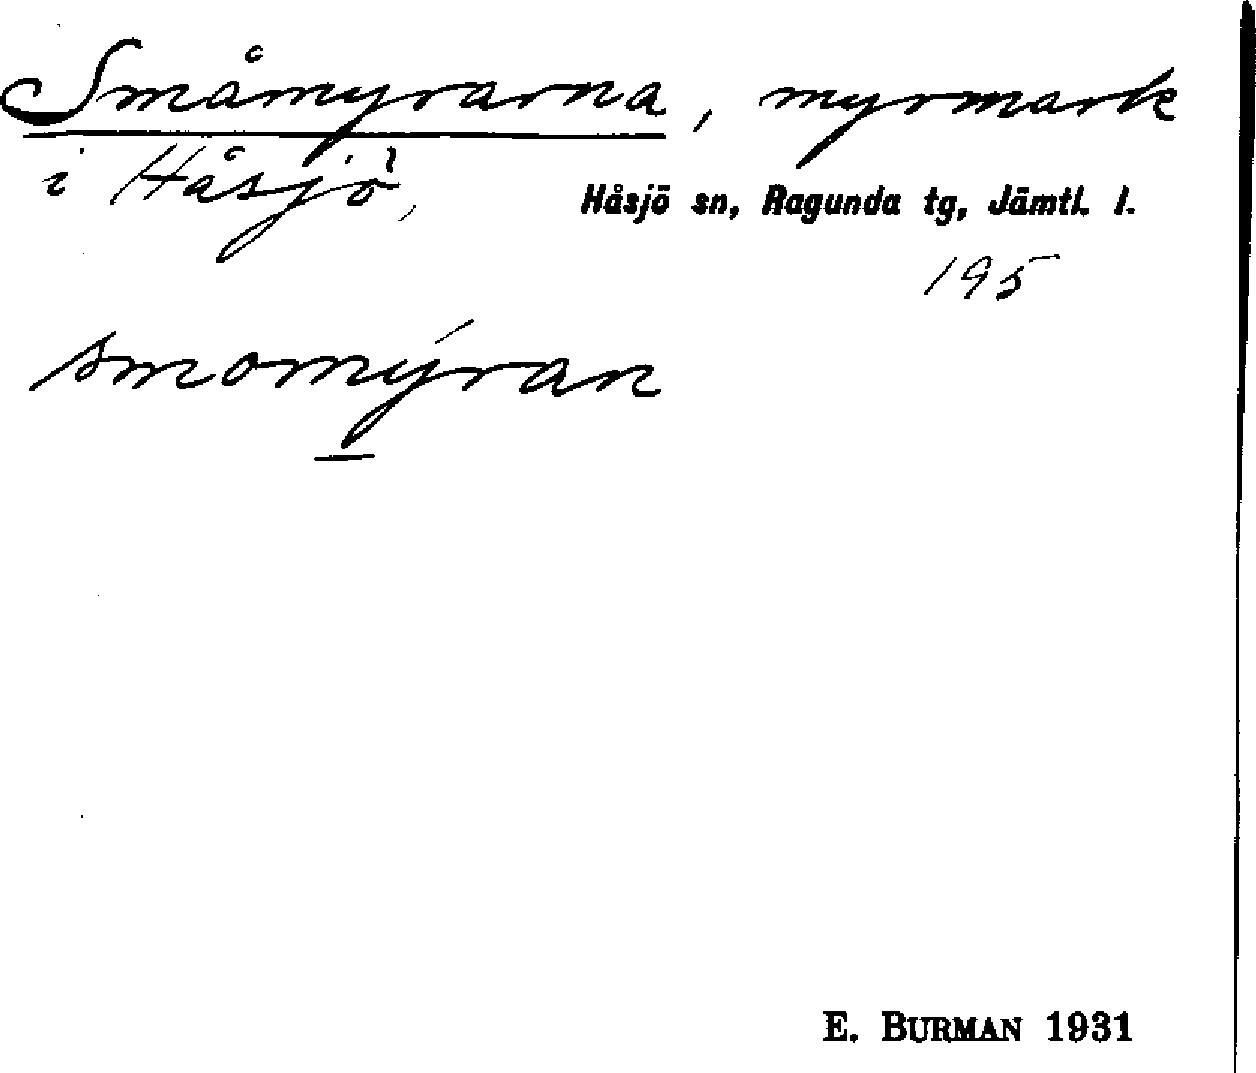 Småmyrarna, myrmark
i Håsjö,
Håsjö sn, Ragunda tg, Jämtl. l.
195
smomýran
E. BURMAN 1931